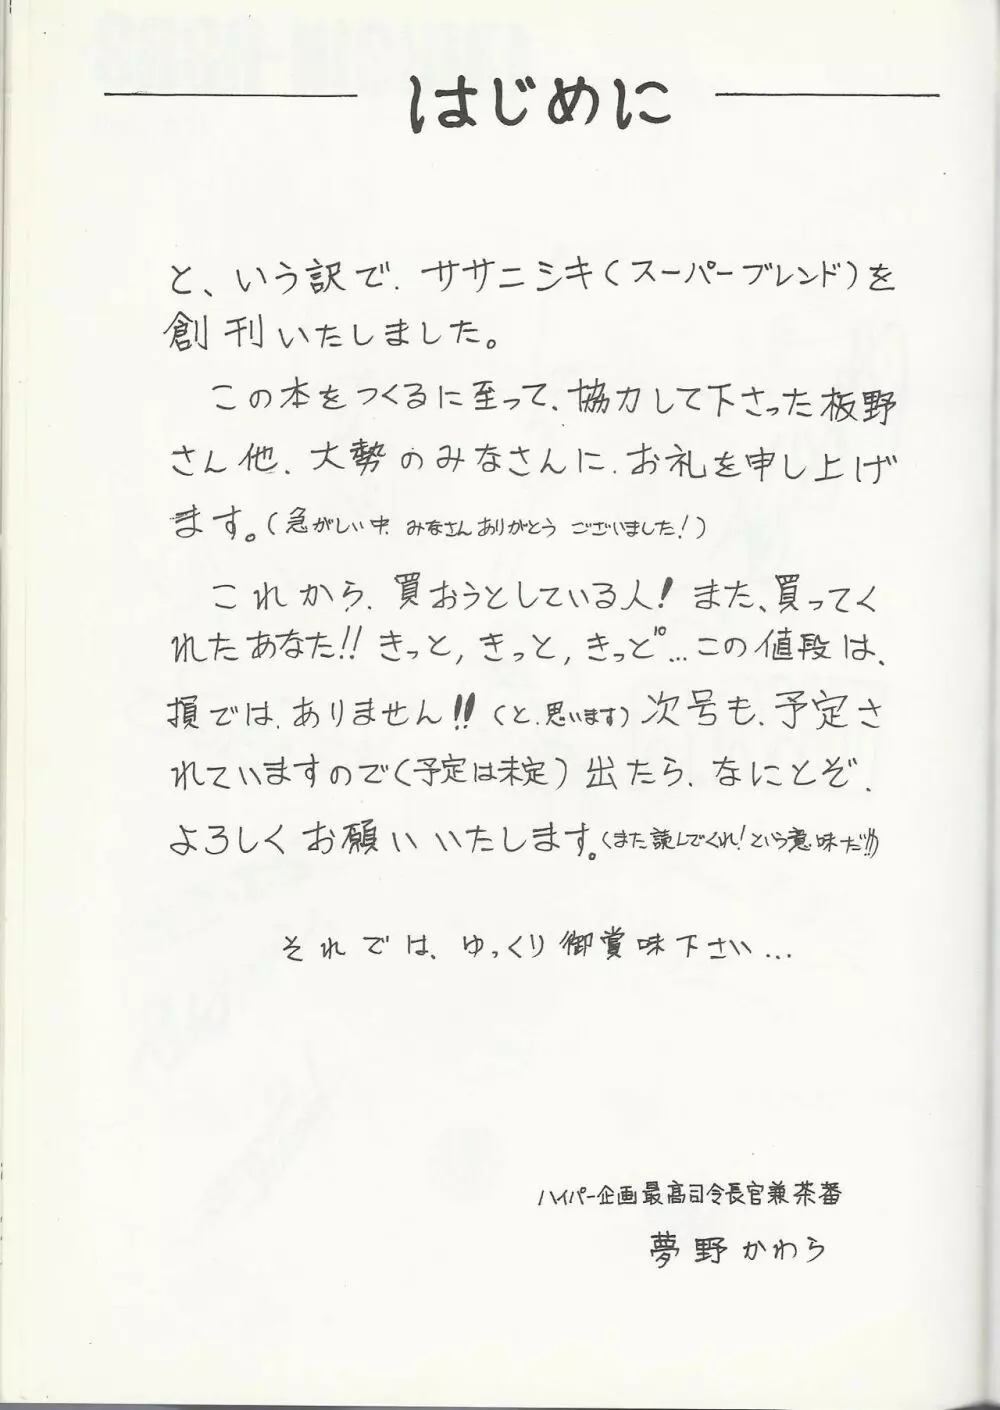 はじめに
と、いう訳で、ササニシキ(スーパーブレンド)を
創刊いたしました。
この本をつくるに至って、協力して下さった板野
さん他、大勢のみなさんに、お礼を申し上げ
ます。(急がしい中、みなさんありがとうございました!)
これから、買おうとしている人!また、買ってく
れたあなた!!きっと,きっと,きっど…この値段は、
損では、ありません!!(と、思います)次号も、予定さ
れていますので(予定は未定)出たら、なにとぞ、
よろしくお願いいたします。(また読んでくれ!という意味だ!!)
それでは、ゆっくり御賞味下さい…
ハイパー企画最高司令長官兼茶番
夢野かわら